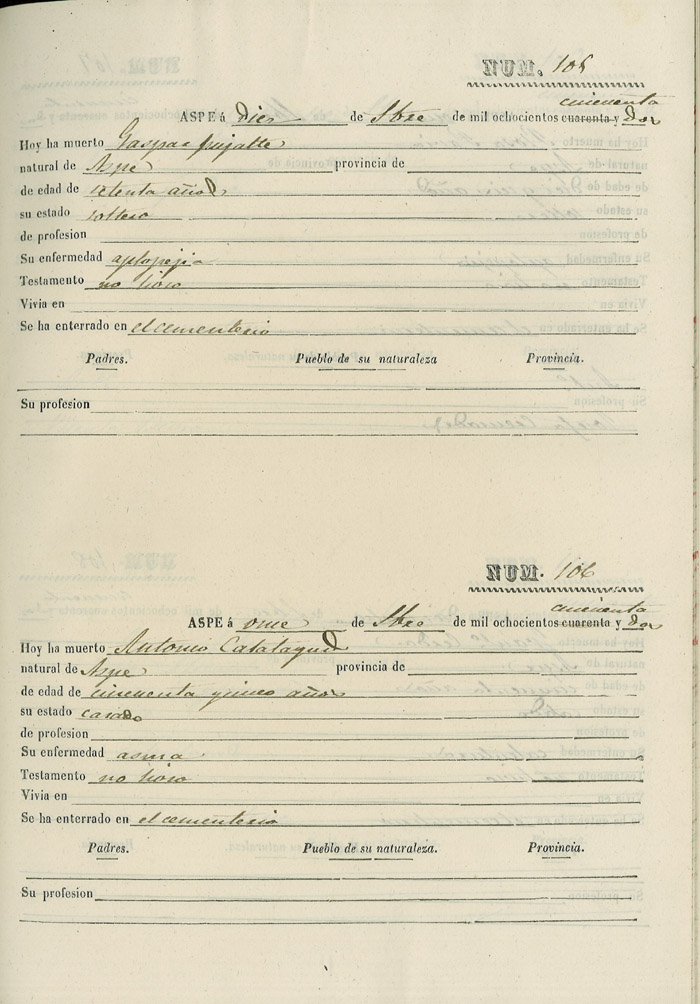 NUM. 105
cincuenta
ASPE á Diez de Stbre de mil ochocientos cuarenta y Dos
Hoy ha muerto Gaspar
natural de Aspe provincia de
de edad de setenta años
su estado soltero
de profesion
Su enfermedad
Testamento no hiso
Vivia en
Se ha enterrado en el cementerio
Padres. Pueblo de su naturaleza Provincia.
Su profesion
NUM. 106
cincuenta
ASPE á once de Stbre de mil ochocientos cuarenta y Dos
Hoy ha muerto Antonio Calatayud
natural de Aspe provincia de
de edad de cincuenta y cinco años
su estado casado
de profesion
Su enfermedad asma
Testamento no hiso
Vivia en
Se ha enterrado en el cementerio
Padres. Pueblo de su naturaleza. Provincia.
Su profesion